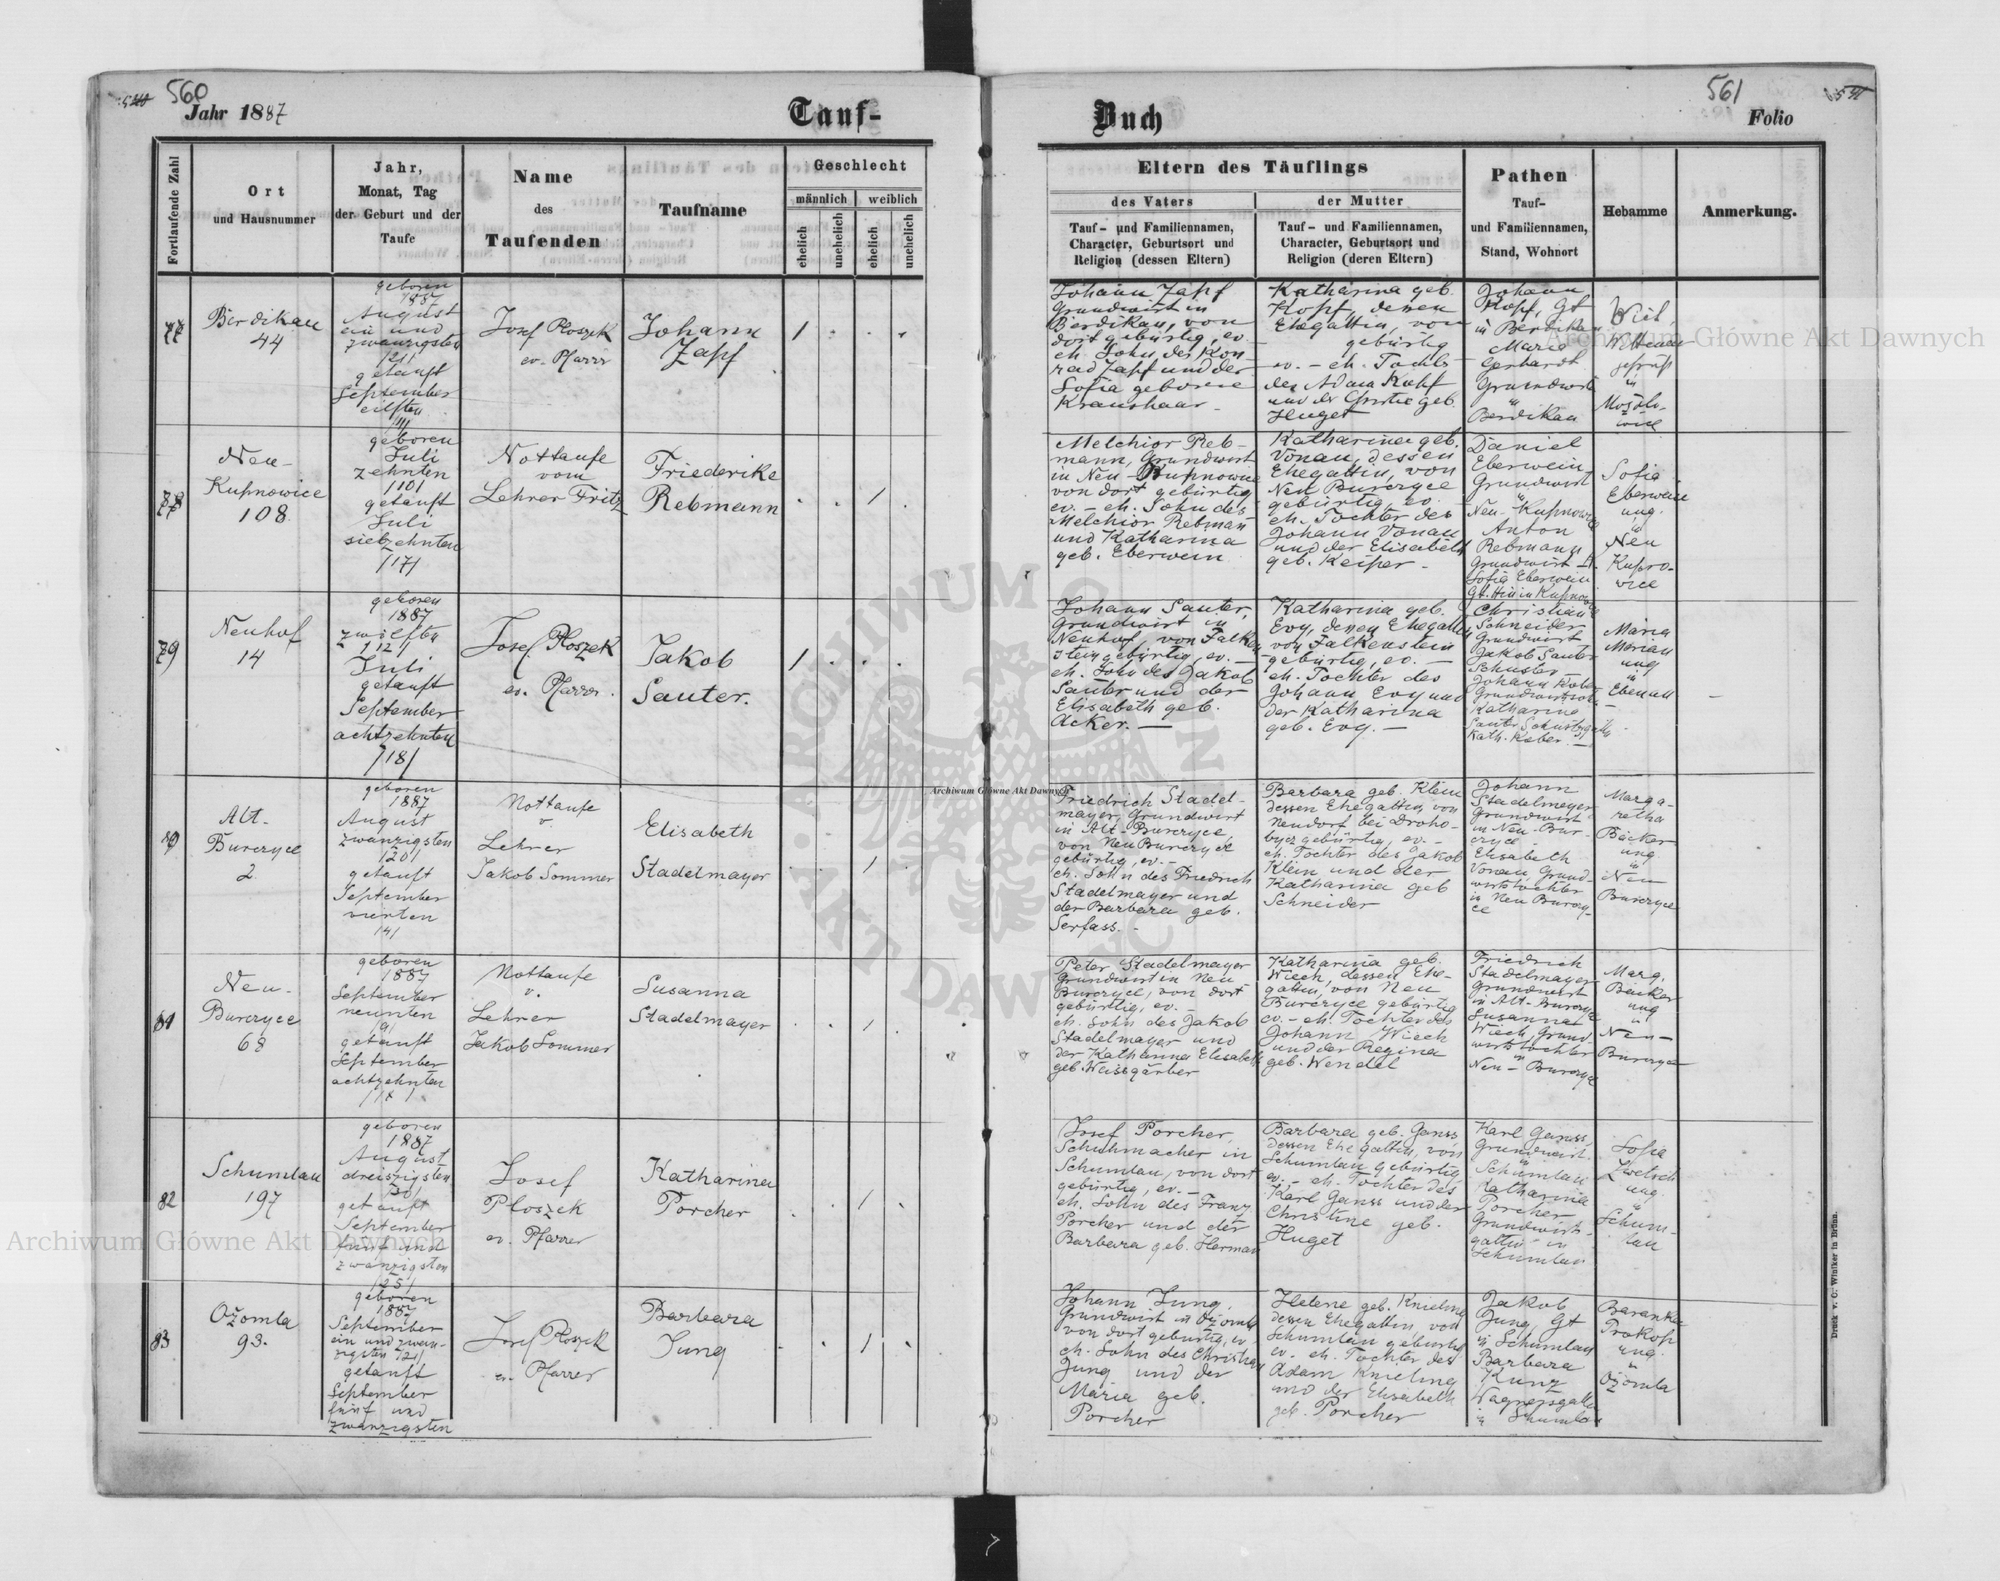 560
Jahr 1887
Tauf-
Buch
561
Folio
Fortlaufende Zahl
Ort
und Hausnummer
Jahr,
Monat, Tag
der Geburt und der
Taufe
Name
des
Taufenden
Taufname
Geschlecht
männlich
weiblich
ehelich
unehelich
ehelich
unehelich
Eltern des Täuflings
des Vaters
Tauf- und Familiennamen,
Character, Geburtsort und
Religion (dessen Eltern)
der Mutter
Tauf- und Familiennamen,
Character, Geburtsort und
Religion (deren Eltern)
Pathen
Tauf-
und Familiennamen,
Stand, Wohnort
Hebamme
Anmerkung.
77
Berdikau
44
geboren
1887
August
ein und
zwanzigsten
/21/
getauft
September
eilften
/11/
Josef Ploszek
ev. Pfarrer
Johann
Zapf
1
Johann Zapf
Grundwirt in
Berdikau, von
dort gebürtig, ev.
eh. Sohn des Kon-
rad Zapf und der
Sofia geborene
Kraushaar
Katharina geb.
Kopf, dessen
Ehegattin, von
gebürtig
ev. - eh. Tochter
des Adam Kopf
und der Christie geb.
Huget
Johann
Kopf, Gt
in Berdikau
Maria
Gerhardt
Grundwirt
in
Berdikau
geprüft
in
78
Neu-
Kupnowice
108
geboren
Juli
zehnten
/10/
getauft
Juli
siebzehnten
/17/
Nottaufe
vom
Lehrer Fritz
Friederike
Rebmann
1
Melchior Reb-
mann, Grundwirt
in Neu-Kupnowice
von dort gebürtig
ev. - eh. Sohn des
Melchior Rebman
und Katharina
geb. Eberwein
Katharina geb.
Vonau, dessen
Ehegattin, von
Neu Burczyce
gebürtig, ev.
eh. Tochter des
Johann Vonau
und der Elisabeth
geb. Keiper -
Daniel
Eberwein,
Grundwirt
in
Neu-Kupnowice
Anton
Rebmann
Grundwirt
Sofia Eberwein
Sofia
Eberwein
ung.
in
Neu
Kupno-
vice
79
Neuhof
14
geboren
1887
zwölften
/12/
Juli
getauft
September
achtzehnten
/18/
Josef Ploszek
ev. Pfarrer.
Jakob
Sauter.
1
Johann Sauter,
Grundwirt in
Neuhof, von Falken-
stein gebürtig, ev. -
eh. Sohn des Jakob
Sauter und der
Elisabeth geb.
Acker. -
Katharina geb.
Evy, dessen Ehegattin
von Falkenstein
gebürtig, ev. -
eh. Tochter des
Johann Evy und
der Katharina
geb. Evy. -
Christian
Schneider
Grundwirt
Jakob Sauter
Schuster
Johann Keber
Katharina
Sauter Schustersgattin
Kath. Keber. -
Maria
Morian
ung
in
Ebenau
80
Alt-
Burczyce
2
geboren
1887
August
zwanzigsten
/20/
getauft
September
vierten
/4/
Nottaufe
v.
Lehrer
Jakob Sommer
Elisabeth
Stadelmayer
1
Friedrich Stadel-
mayer, Grundwirt
in Alt-Burczyce,
von Neu Burczyce
gebürtig, ev. -
eh. Sohn des Friedrich
Stadelmayer und
der Barbara geb.
Serfass. -
Barbara geb. Klein
dessen Ehegattin, von
Neudorf bei Droho-
bycz gebürtig, ev. -
eh. Tochter des Jakob
Klein und der
Katharina geb
Schneider
Johann
Stadelmeyer
Grundwirt
in Neu-Bur-
czyce
Elisabeth
Vonau, Grund-
wirtstochter
in Neu Burczy-
ce
Marga-
retha
Bäcker
ung
in
Neu
Burczyce
81
Neu-
Burczyce
68
geboren
1887
September
neunten
/9/
getauft
September
achtzehnten
/18/
Nottaufe
v.
Lehrer
Jakob Sommer
Susanna
Stadelmayer
1
Peter Stadelmayer
Grundwirt in Neu
Burczyce, von dort
gebürtig, ev. -
eh. Sohn des Jakob
Stadelmayer und
der Katharina Elisabeth
geb. Weissgärber
Katharina geb.
Wiech, dessen Ehe-
gattin, von Neu
Burczyce gebürtig
ev. - eh. Tochter des
Johann Wiech
und der Regina
geb. Wendel
Friedrich
Stadelmayer
Grundwirt
in Alt-Burczyce
Susanna
Wiech, Grund-
wirtstochter
in
Neu-Burczyce
Marg.
Bäcker
ung
in
Neu-
Burczyce
82
Schumlau
197
geboren
1887
August
dreiszigsten
/30/
getauft
September
fünf und
zwanzigsten
/25/
Josef
Ploszek
ev. Pfarrer
Katharina
Porcher
1
Josef Porcher,
Schuhmacher in
Schumlau, von dort
gebürtig, ev. -
eh. Sohn des Franz
Porcher und der
Barbara geb. Herman
Barbara geb. Ganss
dessen Ehegattin, von
Schumlau gebürtig
ev. - eh. Tochter des
Karl Ganss und der
Christine geb.
Huget
Karl Ganss,
Grundwirt
in
Schumlau
Katharina
Porcher
Grundwirts-
gattin in
Schumlau
Sofia
Zwetsch
ung.
in
Schum-
lau
83
Ożomla
93.
geboren
1887
September
ein und zwan-
zigsten /21/
getauft
September
fünf und
zwanzigsten
Josef Ploszek
ev. Pfarrer
Barbara
Jung
1
Johann Jung,
Grundwirt in Ożomla
von dort gebürtig, ev.
eh. Sohn des Christian
Jung und der
Maria geb.
Porcher
Helene geb. Knieling
dessen Ehegattin, von
Schumlau gebürtig
ev. eh. Tochter des
Adam Knieling
und der Elisabeth
geb. Porcher
Jakob
Jung, Gt
in Schumlau
Barbara
Kunz
Wagnersgattin
in Schumlau
Baranka
Prokop
ung.
in
Ożomla
Druck v. C. Winiker in Brünn.
Archiwum Główne Akt Dawnych
Archiwum Główne Akt Dawnych
Archiwum Główne Akt Dawnych
ARCHIWUM GŁÓWNE AKT DAWNYCH